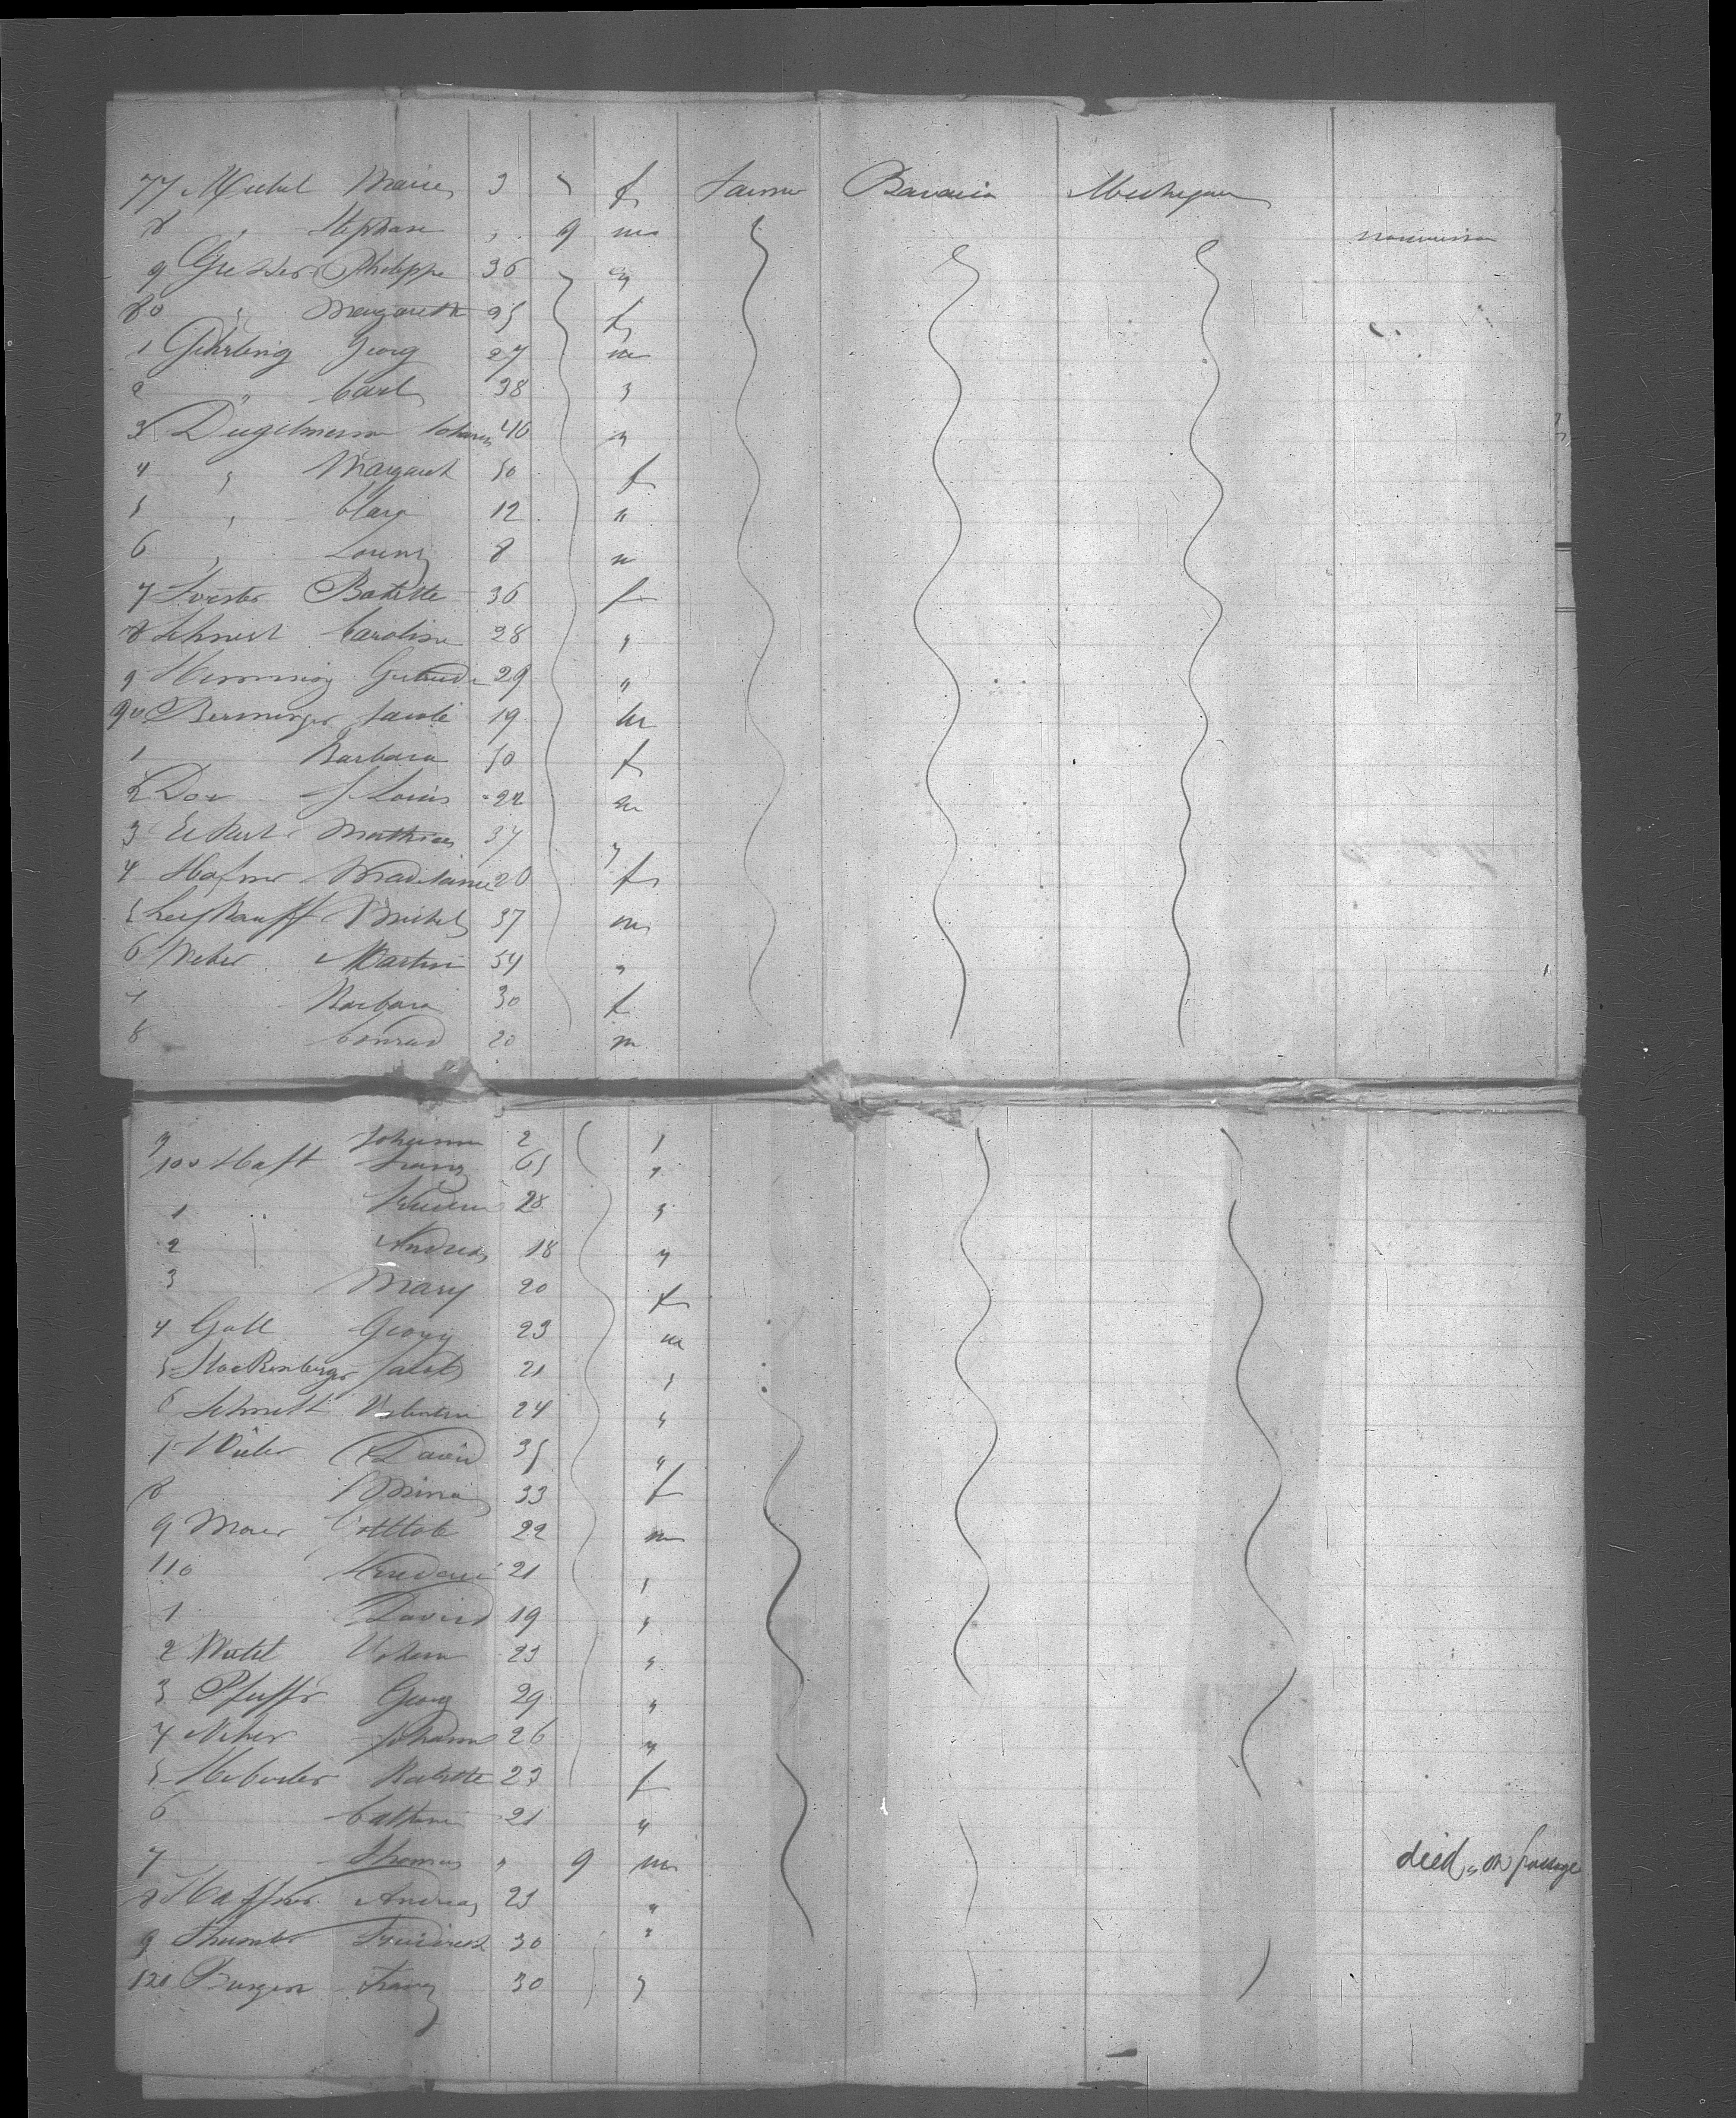 77 Michel Marie 3 " f Farmer Bavaria Michigan
8 " Stephan " 9 m nourrisson
9 Gresser Philippe 36 "
80 " Margareth 35 f
1 Gehrling Georg 27 m
2 " Carl 38 "
3 Diegelmann Johann 46 "
4 " Margareth 50 f
5 " Clara 12 "
6 " Lorenz 8 m
7 Forster Babette 36 f
8 Schnert Caroline 28 "
9 Henning Gertrud 29 "
90 Berninger Jacob 19 m
1 Barbara 50 f
2 Dox J Louis 22 m
3 Eckert Mathias 34 "
4 Hafner Madelaine 20 f
5 Leykauff Michel 37 m
6 Weber Martin 54 "
7 Barbara 30 f
8 Conrad 20 m
9 Johann 2 "
100 Haft Franz 65 "
1 " 28 "
2 " Andreas 18 "
3 Mary 20 f
4 Gall Georg 23 m
5 Hackenberger Jacob 21 "
6 Schmitt Valentin 24 "
7 David 35 "
8 Mina 33 f
9 Maier Gottlob 22 m
110 Frederic 21 "
1 David 19 "
2 Johann 23 "
3 Pfeiffer Georg 29 "
4 Weber Johann 26 "
5 Babette 23 f
6 Catharine 21 "
7 Thomas " 9 m died on passage
8 Haffner Andreas 23 "
9 Friedrich 30 "
120 Burger Franz 30 "